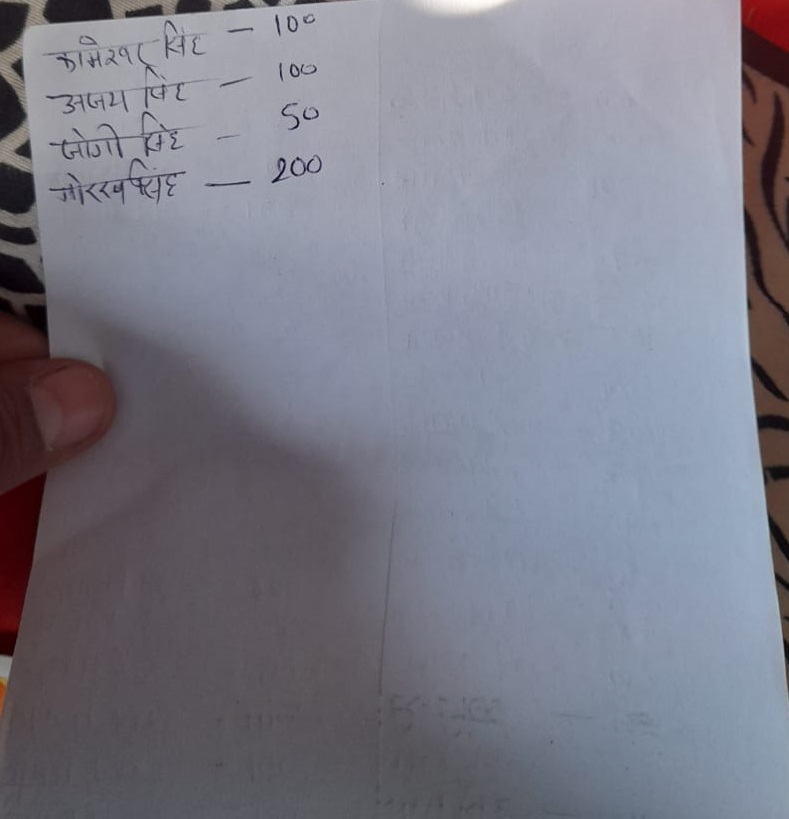 कामेश्वर सिंह — 100
अजय सिंह — 100
जोगी सिंह — 50
गोरख सिंह — 200